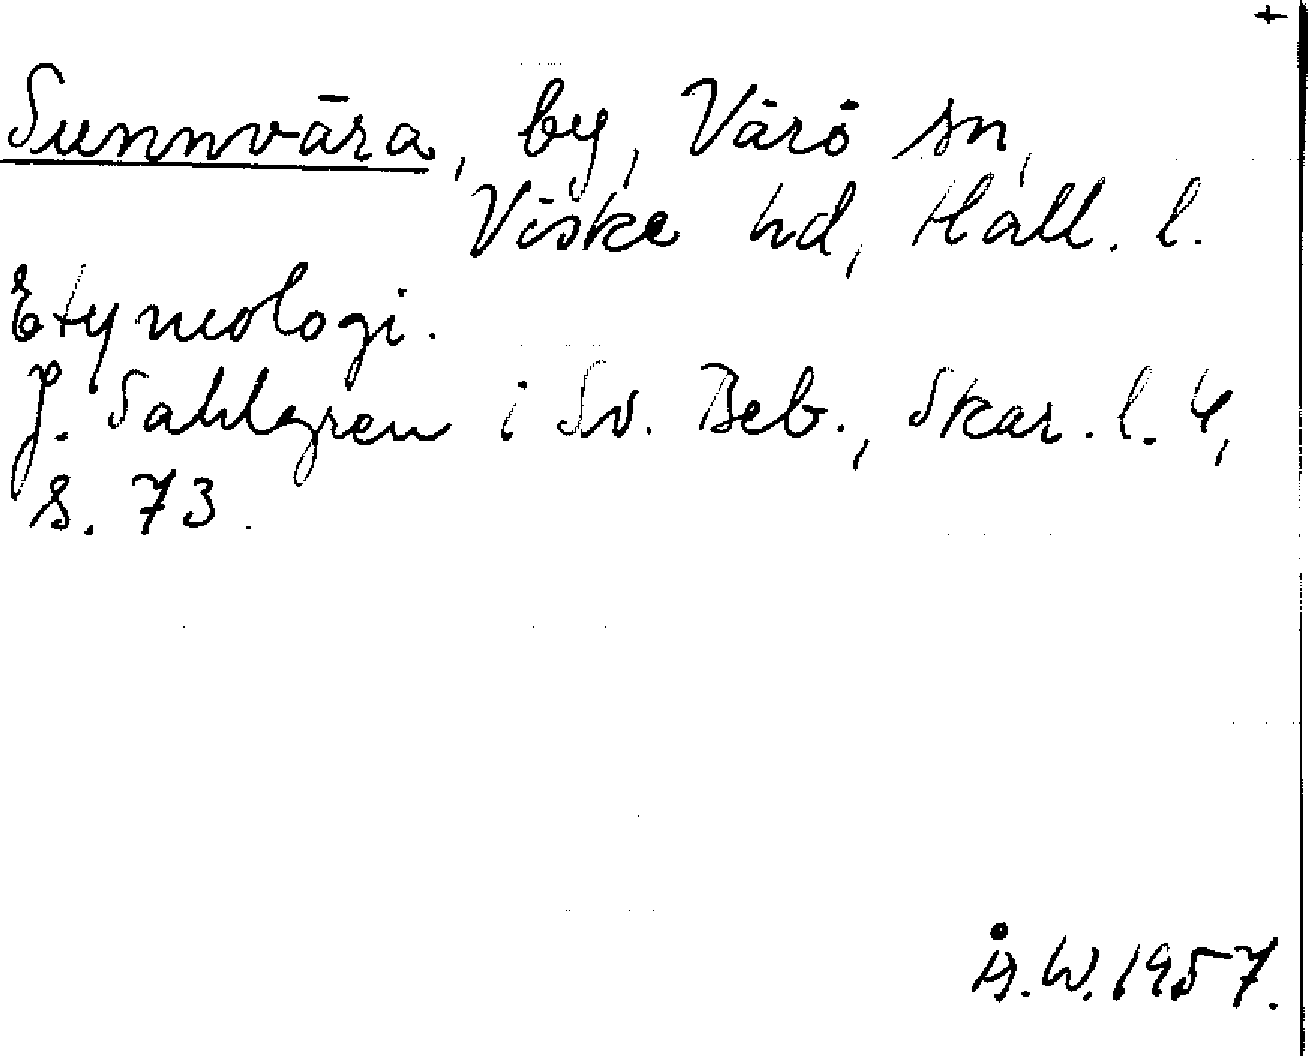 +
Sunnvära, by, Värö sn,
Viske hd, Hall. l.
Etymologi.
J. Sahlgren i Sv. Beb., Skar. l. 4,
s. 73.
Å.W. 1957.